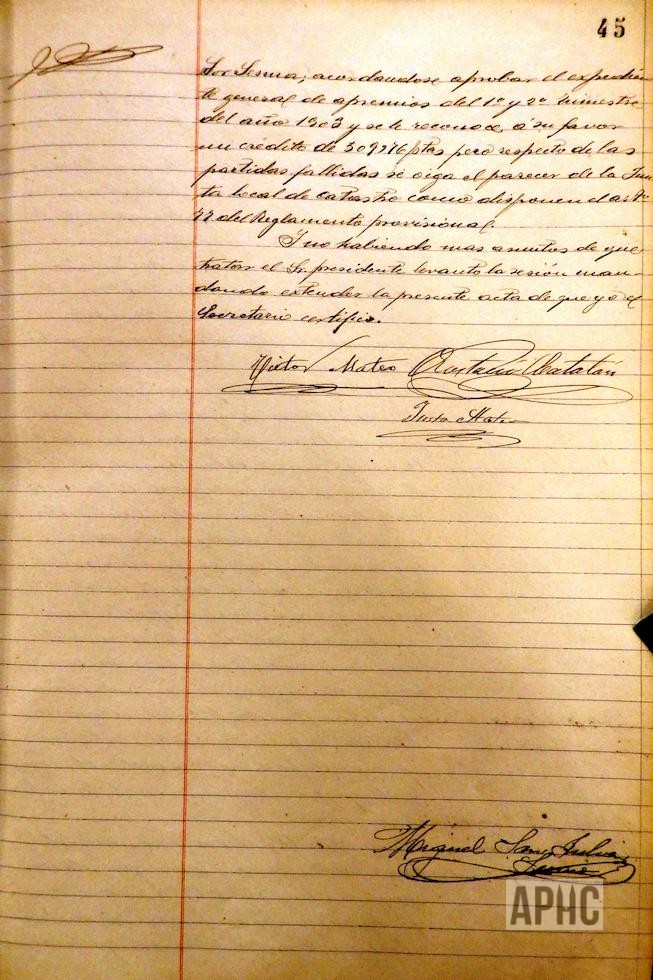 45
Sor Lesma, acordandose aprobar el expedien
te general de apremios del 1º y 2º trimestre
del año 1903 y se le reconoce a su favor
un credito de 309'76 ptas pero respecto de las
partidas fallidas se oiga el parecer de la Jun
ta local de catastro como disponen el artº
22 del Reglamento provisional.
Y no habiendo mas asuntos de que
tratar el Sr. presidente levanto la sesión man-
dando extender la presente acta de que yo el
Secretario certifico.
Victor Mateo Eustasio Catalán
Justo Mateo
Miguel San Julian
APHC